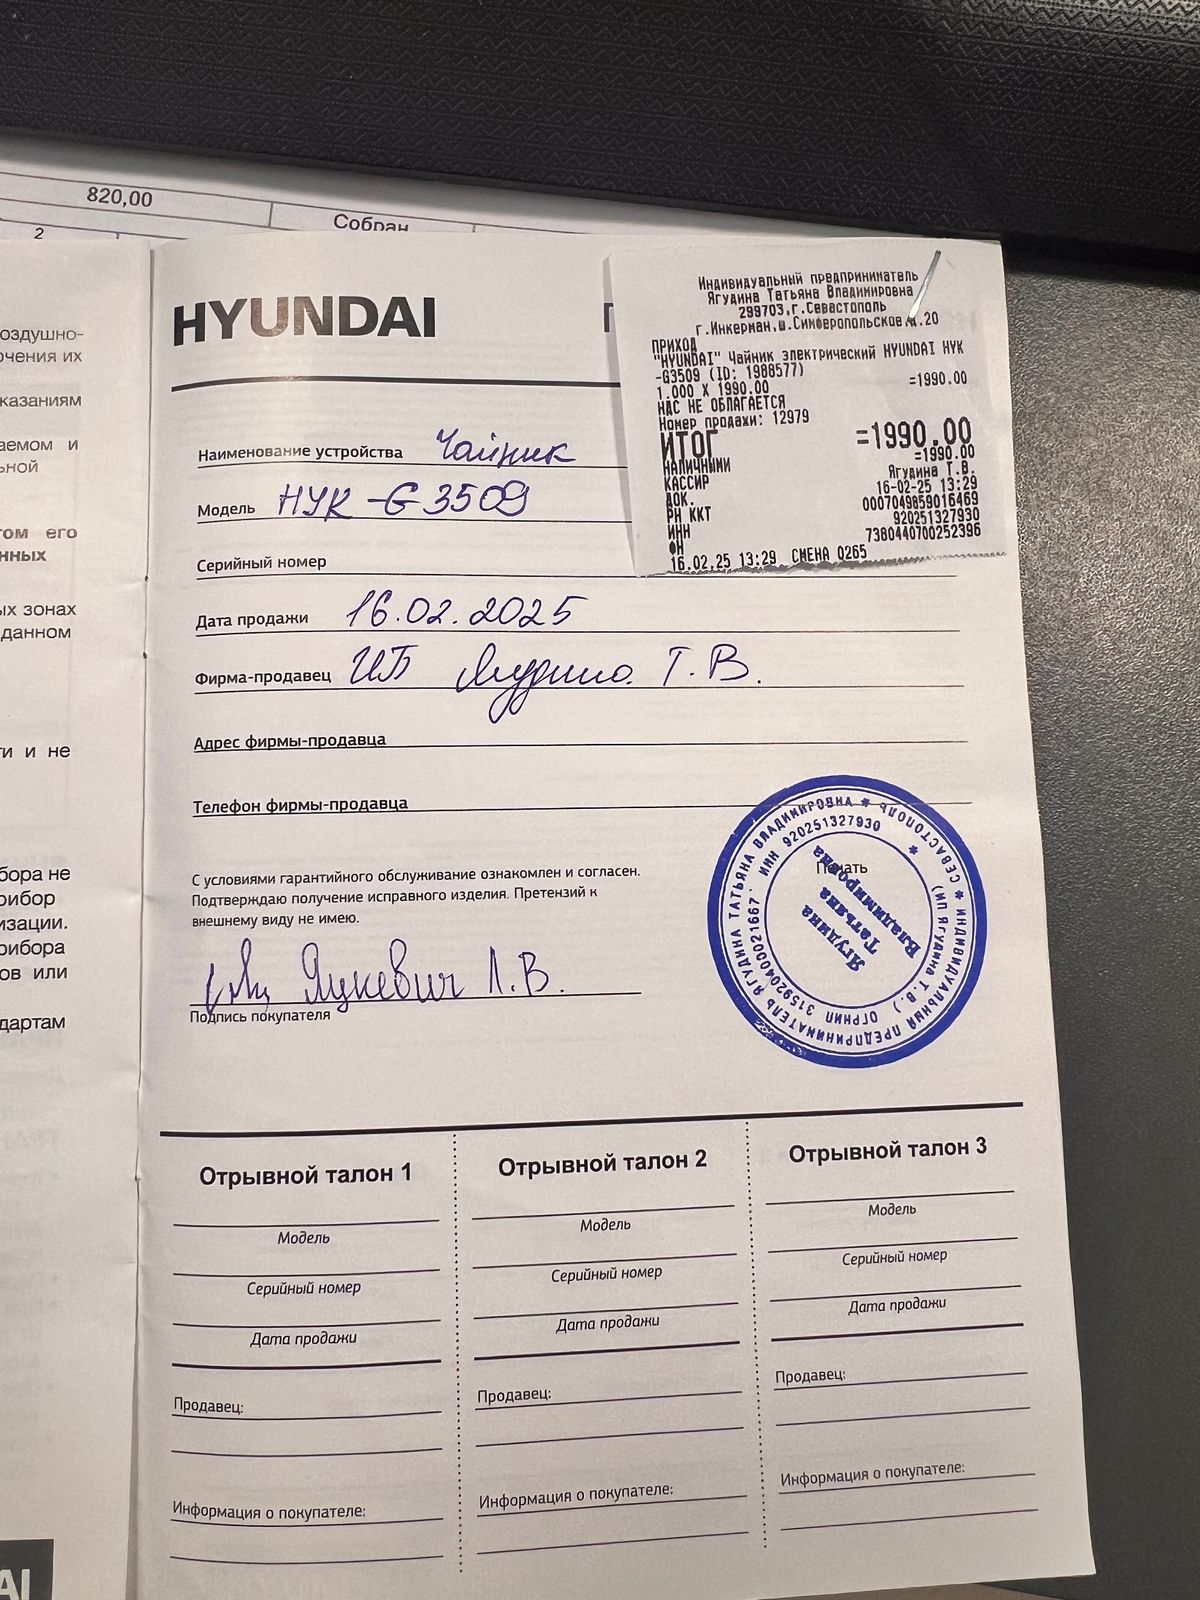 820,00
Собран
2
оздушно-
очения их
казаниям
аемом и
ьной
том его
нных
ых зонах
данном
ти и не
бора не
рибор
изации.
рибора
ов или
дартам
AI
HYUNDAI
Индивидуальный предприниматель
Ягудина Татьяна Владимировна
299703,г.Севастополь
г.Инкерман,ш.Симферопольское,д.20
ПРИХОД
"HYUNDAI" Чайник электрический HYUNDAI HYK
-G3509 (ID: 1988577)
1.000 X 1990.00 =1990.00
НДС НЕ ОБЛАГАЕТСЯ
Номер продажи: 12979
ИТОГ =1990.00
НАЛИЧНЫМИ =1990.00
КАССИР Ягудина Т.В.
ДОК. 16-02-25 13:29
РН ККТ 0007049859016469
ИНН 920251327930
ФН 7380440700252396
16.02.25 13:29 СМЕНА 0265
Наименование устройства Чайник
Модель HYK-G3509
Серийный номер
Дата продажи 16.02.2025
Фирма-продавец ИП Ягудина Т.В.
Адрес фирмы-продавца
Телефон фирмы-продавца
С условиями гарантийного обслуживание ознакомлен и согласен.
Подтверждаю получение исправного изделия. Претензий к
внешнему виду не имею.
Яцкевич Л.В.
Подпись покупателя
Печать
* ИНДИВИДУАЛЬНЫЙ ПРЕДПРИНИМАТЕЛЬ ЯГУДИНА ТАТЬЯНА ВЛАДИМИРОВНА * СЕВАСТОПОЛЬ
(ИП ЯГУДИНА Т.В.) ОГРНИП 315920400021667 ИНН 920251327930 *
Ягудина
Татьяна
Владимировна
Отрывной талон 1
Модель
Серийный номер
Дата продажи
Продавец:
Информация о покупателе:
Отрывной талон 2
Модель
Серийный номер
Дата продажи
Продавец:
Информация о покупателе:
Отрывной талон 3
Модель
Серийный номер
Дата продажи
Продавец:
Информация о покупателе: